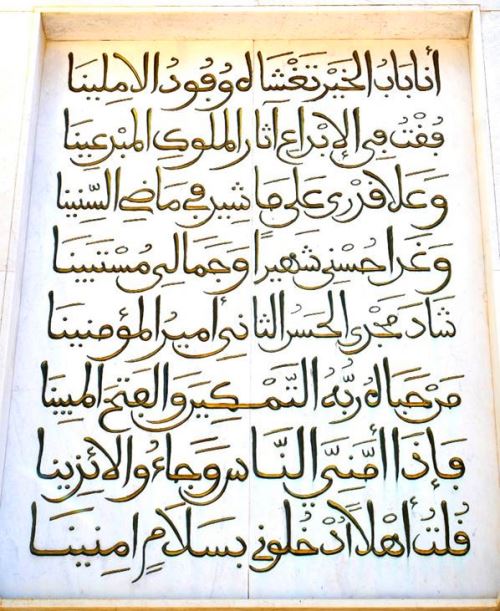 أنا بابُ الخَيْر تَغْشاه وُفُودُ الامِلِينَا
فُقْتُ فِي الإبْداع آثار الملوكِ المبْدعِينَا
وَعَلا قدْرِي عَلى مَا شِيد في مَاضِي السِّنِينا
وَغَدا حُسْنِي شَهِيرًا وَجَمالِي مُسْتَبِينَا
شادَ مَجْدِي الحَسَنُ الثانِي أمِيرُ المُؤمِنِينَا
مَن حَباهُ رَبُّهُ التَّمْكِين وَالفَتْحَ المُبِينَا
فَإذَا أمَّنِي النَّاس وَجَاءُوا لائِذِينا
قُلتُ أهْلًا ادْخُلُونِي بسَلَامٍ امِنِينَا